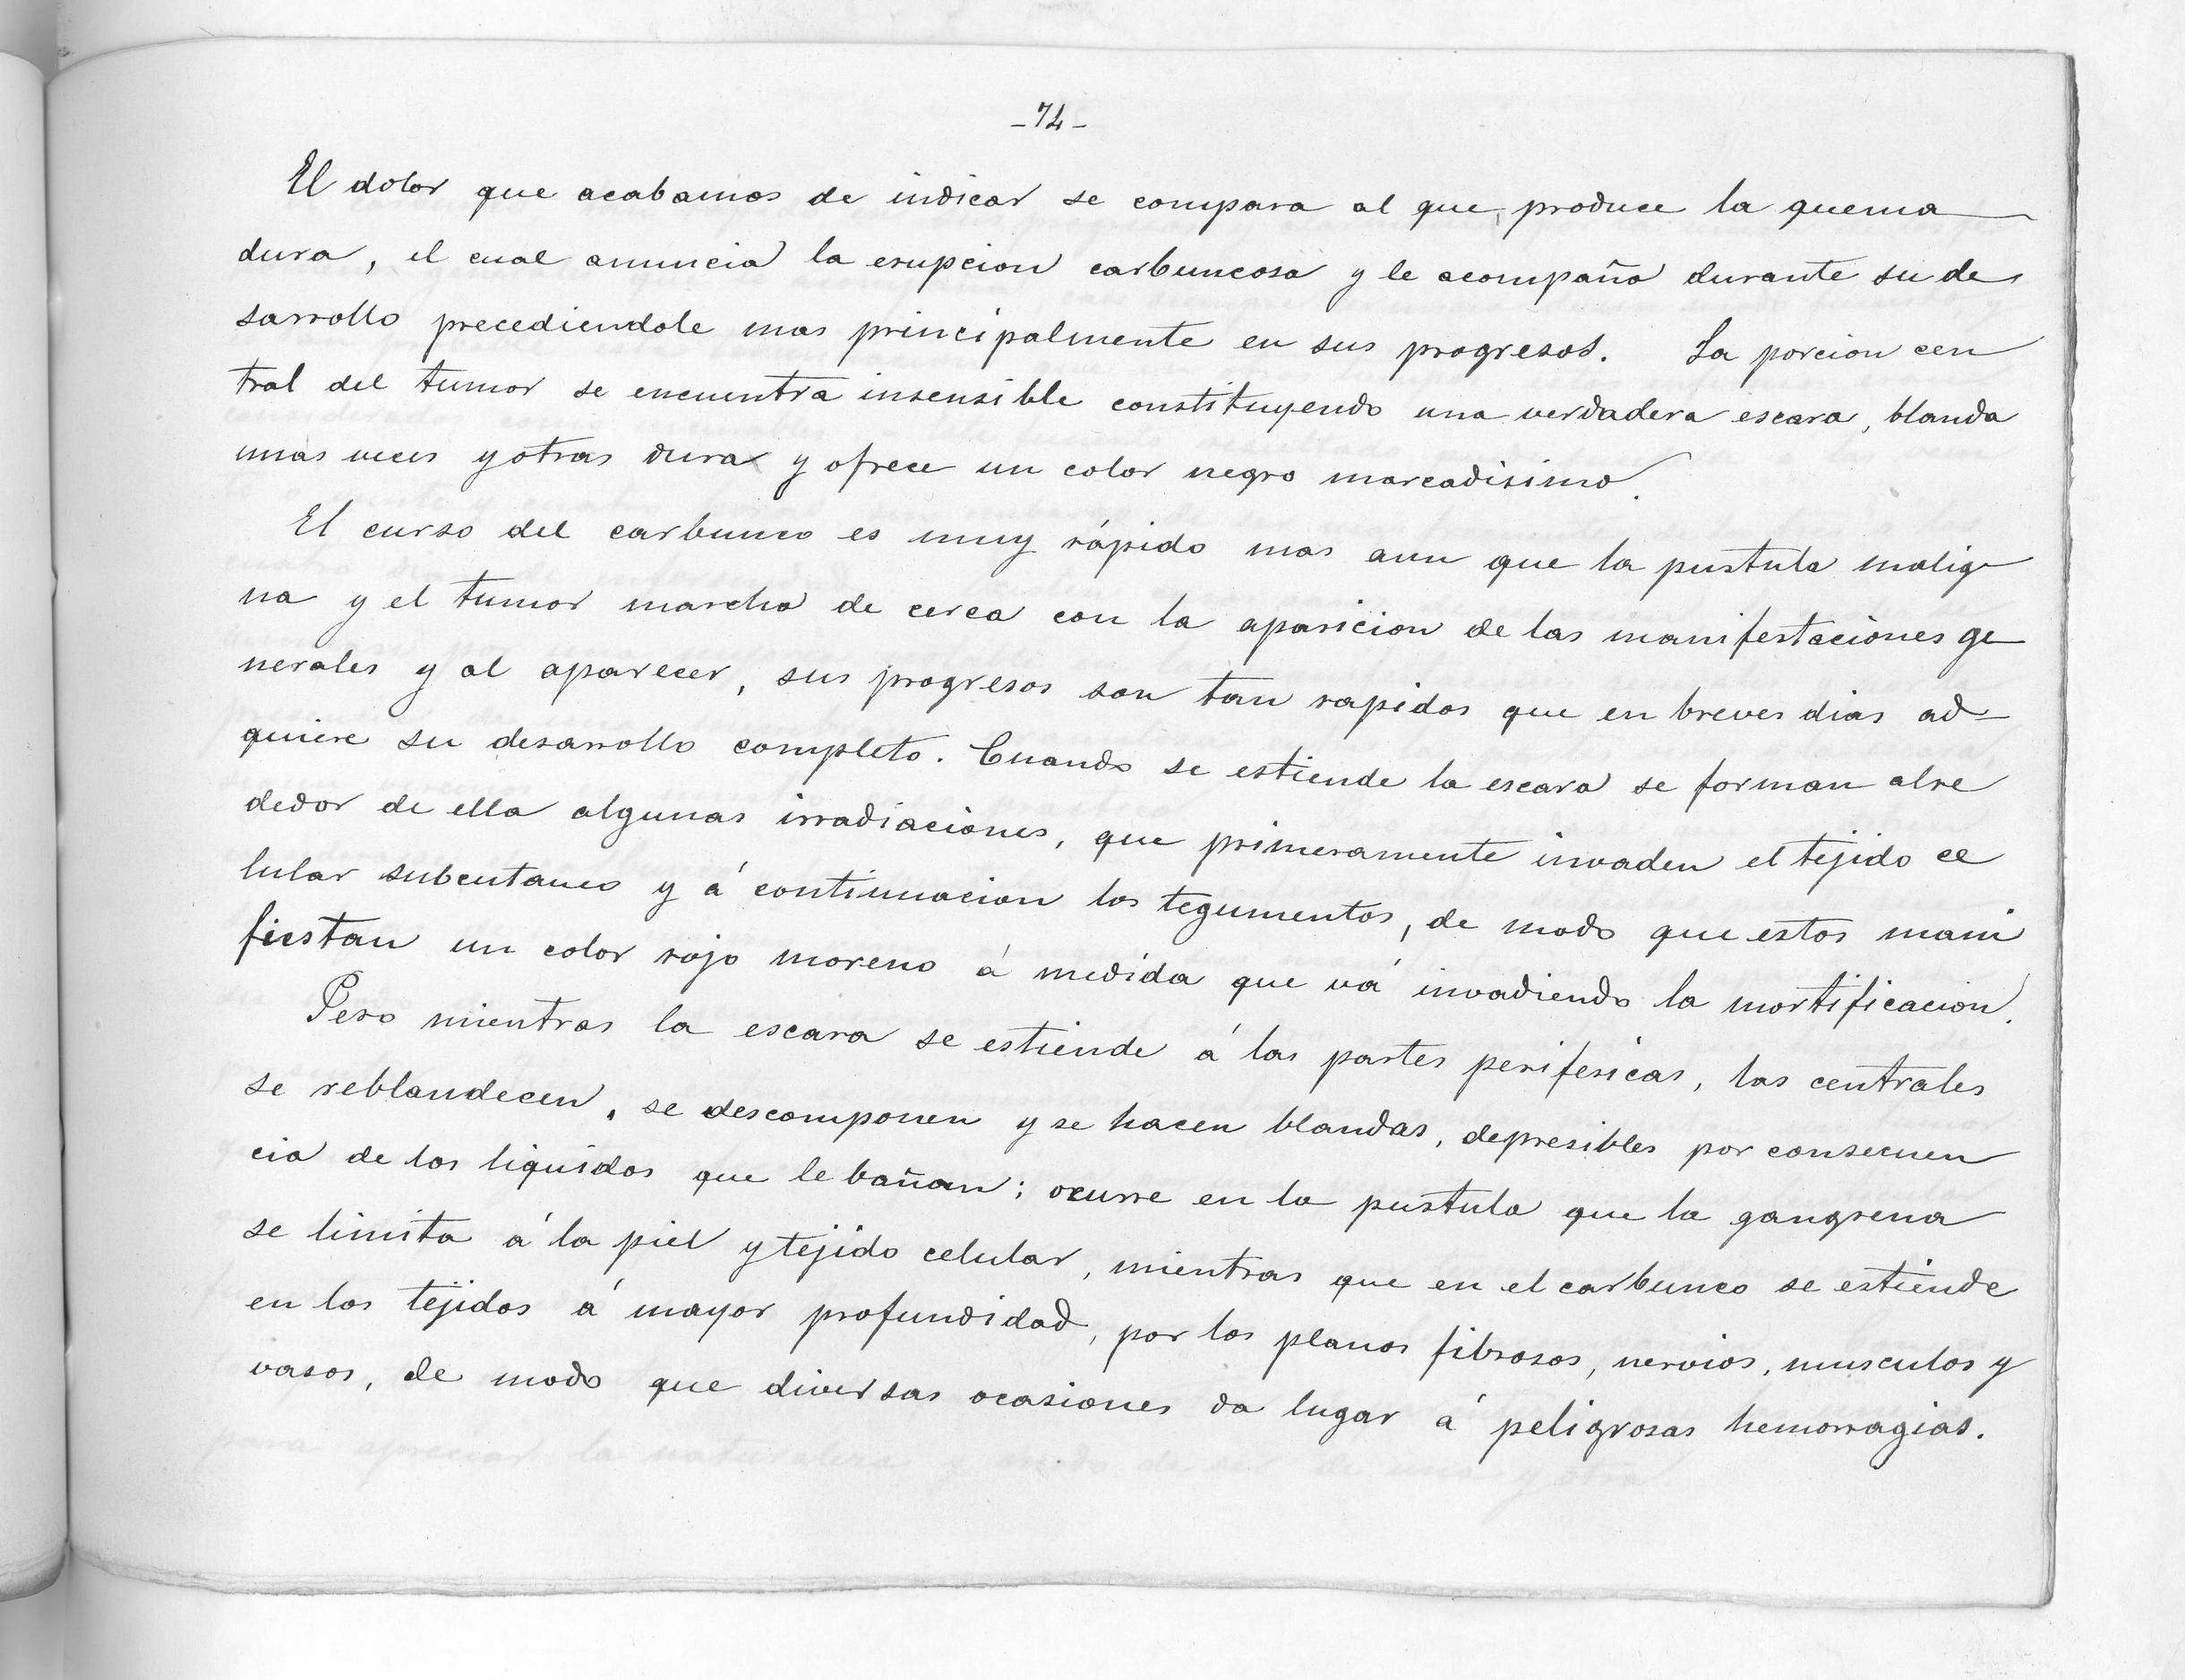 -74-
El dolor que acabamos de indicar se compara al que produce la quema
dura, el cual anuncia la erupcion carbuncosa y le acompaña durante su de
sarrollo precediendole mas principalmente en sus progresos. La porcion cen
tral del tumor se encuentra insensible constituyendo una verdadera escara, blanda
unas veces y otras dura y ofrece un color negro marcadisimo.
El curso del carbunco es muy rápido mas aun que la pustula malig-
na y el tumor marcha de cerca con la aparicion de las manifestaciones ge
nerales y al aparecer, sus progresos son tan rapidos que en breves dias ad-
quiere su desarrollo completo. Cuando se estiende la escara se forman alre
dedor de ella algunas irradiaciones, que primeramente invaden el tejido ce
lular subcutaneo y á continuacion los tegumentos, de modo que estos mani
fiestan un color rojo moreno á medida que vá invadiendo la mortificacion.
Pero mientras la escara se estiende á las partes perifericas, las centrales
se reblandecen, se descomponen y se hacen blandas, depresibles por consecuen
cia de los liquidos que le bañan; ocurre en la pustula que la gangrena
se limita á la piel y tejido celular, mientras que en el carbunco se estiende
en los tejidos á mayor profundidad, por los planos fibrosos, nervios, musculos y
vasos, de modo que diversas ocasiones da lugar á peligrosas hemorragias.